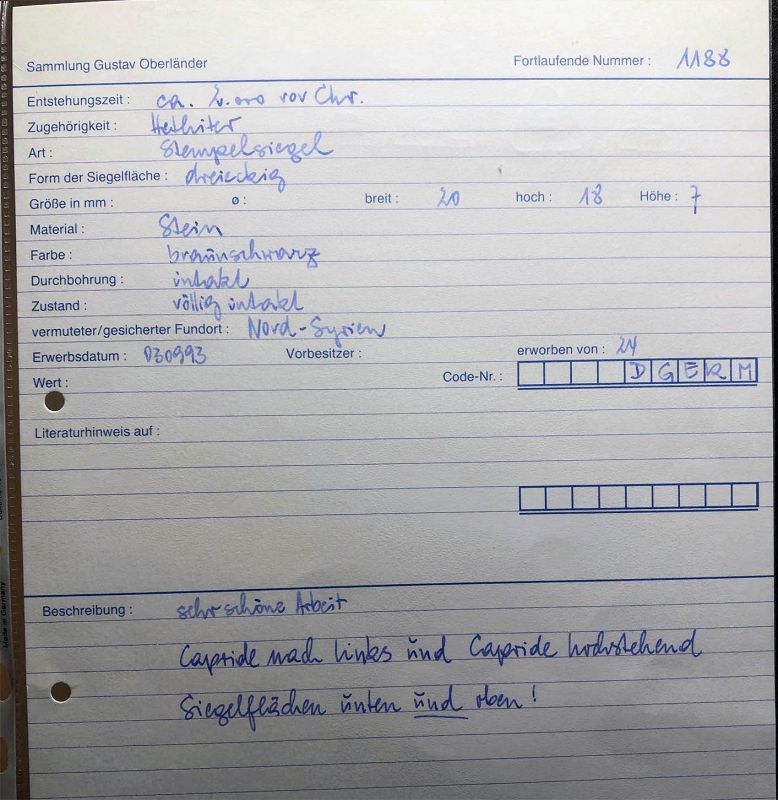 Sammlung Gustav Oberländer Fortlaufende Nummer : 1188
Entstehungszeit : ca. 2.000 vor Chr.
Zugehörigkeit : Hethiter
Art : Stempelsiegel
Form der Siegelfläche : dreieckig
Größe in mm : ø : breit : 20 hoch : 18 Höhe : 7
Material : Stein
Farbe : braunschwarz
Durchbohrung : intakt
Zustand : völlig intakt
vermuteter/gesicherter Fundort : Nord-Syrien
Erwerbsdatum : 030993 Vorbesitzer : erworben von : 24
Wert : Code-Nr. : DGERM
Literaturhinweis auf :
Beschreibung : sehr schöne Arbeit
Capride nach links und Capride hochstehend
Siegelflächen unten und oben !
Made in Germany